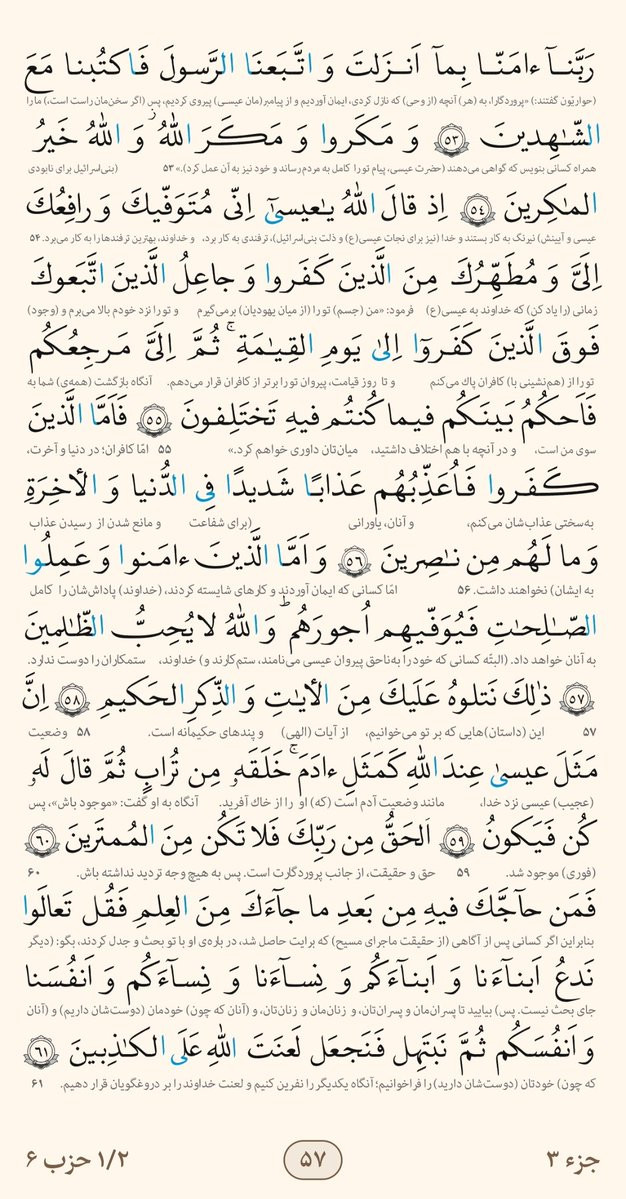 رَبَّنآ ءامَنّا بِمآ اَنزَلتَ وَ اتَّبَعنَا الرَّسولَ فَاكتُبنا مَعَ
(حواریّون گفتند:) «پروردگارا، به (هر) آنچه (از وحی) که نازل کردی، ایمان آوردیم و از پیامبر(مان عیسی) پیروی کردیم، پس (اگر سخن‌مان راست است،) ما را
الشّٰهِدینَ ﴿٥٣﴾ وَ مَكَروا وَ مَكَرَ اللهُ ۖ وَ اللهُ خَیرُ
همراه کسانی بنویس که گواهی می‌دهند (حضرت عیسی، پیام تو را کامل به مردم رساند و خود نیز به آن عمل کرد).» ۵۳ (بنی‌اسرائیل برای نابودی
الماٰكِرینَ ﴿٥٤﴾ اِذ قالَ اللهُ یـٰعیسیٰٓ اِنّی مُتَوَفّیكَ وَ رافِعُكَ
عیسی و آیینش) نیرنگ به کار بستند و خدا (نیز برای نجات عیسی(ع) و ذلت بنی‌اسرائیل)، ترفندی به کار برد، و خداوند، بهترین ترفندها را به کار می‌برد. ۵۴
اِلَیَّ وَ مُطَهِّرُكَ مِنَ الَّذینَ كَفَروا وَ جاعِلُ الَّذینَ اتَّبَعوكَ
زمانی (را یاد کن) که خداوند به عیسی(ع) فرمود: «من (جسم) تو را (از میان یهودیان) برمی‌گیرم و تو را نزد خودم بالا می‌برم و (وجود)
فَوقَ الَّذینَ كَفَروٓا اِلیٰ یَومِ القِیـٰمَةِ ۚ ثُمَّ اِلَیَّ مَرجِعُكُم
تو را از (هم‌نشینی با) کافران پاک می‌کنم و تا روز قیامت، پیروان تو را برتر از کافران قرار می‌دهم. آنگاه بازگشت (همه‌ی) شما به
فَاَحكُمُ بَینَكُم فیما كُنتُم فیهِ تَختَلِفونَ ﴿٥٥﴾ فَاَمَّا الَّذینَ
سوی من است، و در آنچه با هم اختلاف داشتید، میان‌تان داوری خواهم کرد.» ۵۵ امّا کافران؛ در دنیا و آخرت،
كَفَروا فَاُعَذِّبُهُم عَذابًا شَدیدًا فِی الدُّنیا وَ الأخِرَةِ
به‌سختی عذاب‌شان می‌کنم، و آنان، یاورانی (برای شفاعت و مانع شدن از رسیدن عذاب
وَ ما لَهُم مِن نـٰصِرینَ ﴿٥٦﴾ وَ اَمَّا الَّذینَ ءامَنوا وَ عَمِلُوا
به ایشان) نخواهند داشت. ۵۶ امّا کسانی که ایمان آوردند و کارهای شایسته کردند، (خداوند) پاداش‌شان را کامل
الصّـٰلِحـٰتِ فَیُوَفّیهِم اُجورَهُم ۗ وَ اللهُ لا یُحِبُّ الظّـٰلِمینَ
به آنان خواهد داد. (البتّه کسانی که خود را به‌ناحق پیروان عیسی می‌نامند، ستم‌کارند و) خداوند، ستمکاران را دوست ندارد.
﴿٥٧﴾ ذٰلِكَ نَتلوهُ عَلَیكَ مِنَ الأیـٰتِ وَ الذِّكرِ الحَكیمِ ﴿٥٨﴾ اِنَّ
۵۷ این (داستان)هایی که بر تو می‌خوانیم، از آیات (الهی) و پندهای حکیمانه است. ۵۸ وضعیت
مَثَلَ عیسیٰ عِندَ اللهِ كَمَثَلِ ءادَمَ ۚ خَلَقَهٗ مِن تُرابٍ ثُمَّ قالَ لَهٗ
(عجیب) عیسی نزد خدا، مانند وضعیت آدم است (که) او را از خاک آفرید. آنگاه به او گفت: «موجود باش»، پس
كُن فَیَكونُ ﴿٥٩﴾ اَلحَقُّ مِن رَبِّكَ فَلا تَكُن مِنَ المُمتَرینَ ﴿٦٠﴾
(فوری) موجود شد. ۵۹ حق و حقیقت، از جانب پروردگارت است. پس به هیچ وجه تردید نداشته باش. ۶۰
فَمَن حآجَّكَ فیهِ مِن بَعدِ ما جآءَكَ مِنَ العِلمِ فَقُل تَعالَوا
بنابراین اگر کسانی پس از آگاهی (از حقیقت ماجرای مسیح) که برایت حاصل شد، در باره‌ی او با تو بحث و جدل کردند، بگو: (دیگر
نَدعُ اَبنآءَنا وَ اَبنآءَكُم وَ نِسآءَنا وَ نِسآءَكُم وَ اَنفُسَنا
جای بحث نیست. پس) بیایید تا پسران‌مان و پسران‌تان، و زنان‌مان و زنان‌تان، و (آنان که چون) خودمان (دوست‌شان داریم) و (آنان
وَ اَنفُسَكُم ثُمَّ نَبتَهِل فَنَجعَل لَعنَتَ اللهِ عَلَی الكـٰذِبینَ ﴿٦١﴾
که چون) خودتان (دوست‌شان دارید) را فراخوانیم؛ آنگاه یکدیگر را نفرین کنیم و لعنت خداوند را بر دروغگویان قرار دهیم. ۶۱
جزء ۳ ۵۷ ۱/۲ حزب ۶